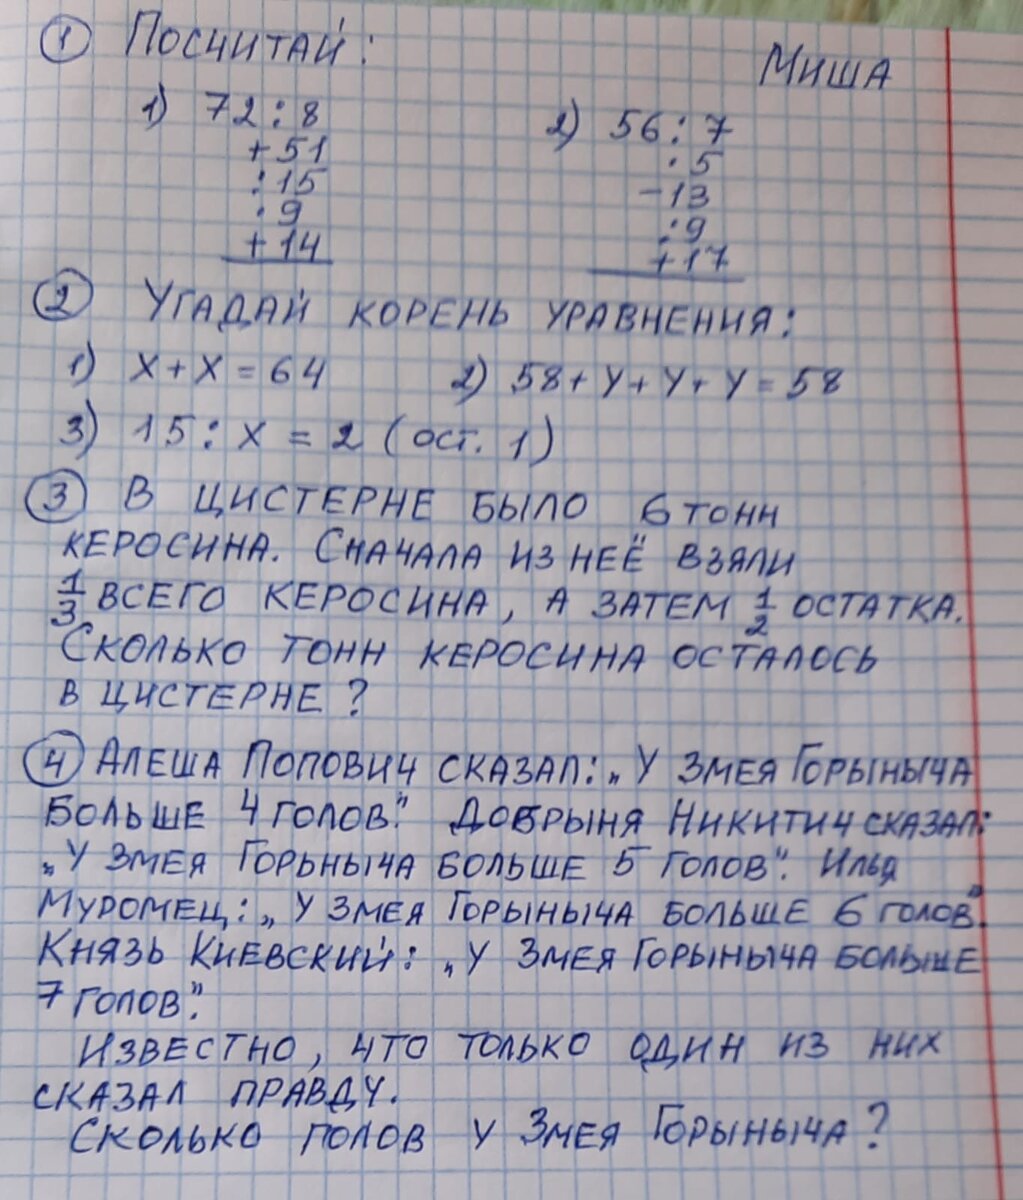 ① Посчитай: Миша
1) 72 : 8 2) 56 : 7
+ 51 · 5
: 15 - 13
· 9 : 9
+ 14 + 17
② Угадай корень уравнения:
1) X + X = 64 2) 58 + У + У + У = 58
3) 15 : X = 2 (ост. 1)
③ В цистерне было 6 тонн
керосина. Сначала из неё взяли
1/3 всего керосина, а затем 1/2 остатка.
Сколько тонн керосина осталось
в цистерне?
④ Алеша Попович сказал: „У Змея Горыныча
больше 4 голов". Добрыня Никитич сказал:
„У Змея Горыныча больше 5 голов". Илья
Муромец: „У Змея Горыныча больше 6 голов".
Князь Киевский: „У Змея Горыныча больше
7 голов".
Известно, что только один из них
сказал правду.
Сколько голов у Змея Горыныча?